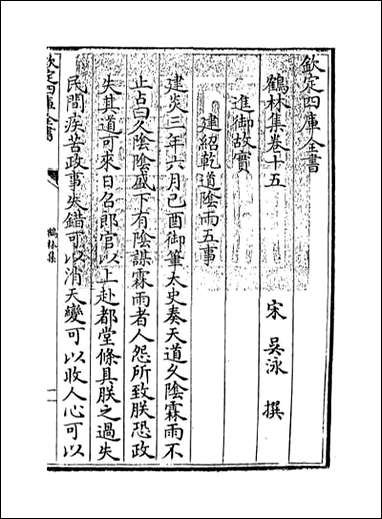 欽定四庫全書
鶴林集卷十五
宋 吳泳 撰
進御故實
建紹乾道陰雨五事
建炎三年六月己酉御筆太史奏天道久陰霖雨不
止占曰久陰陰盛下有陰謀霖雨者人怨所致朕恐政
失其道可來日召郎官以上赴都堂條具朕之過失
民間疾苦政事失錯可以消天變可以收人心可以
欽定四庫全書
鶴林集
一